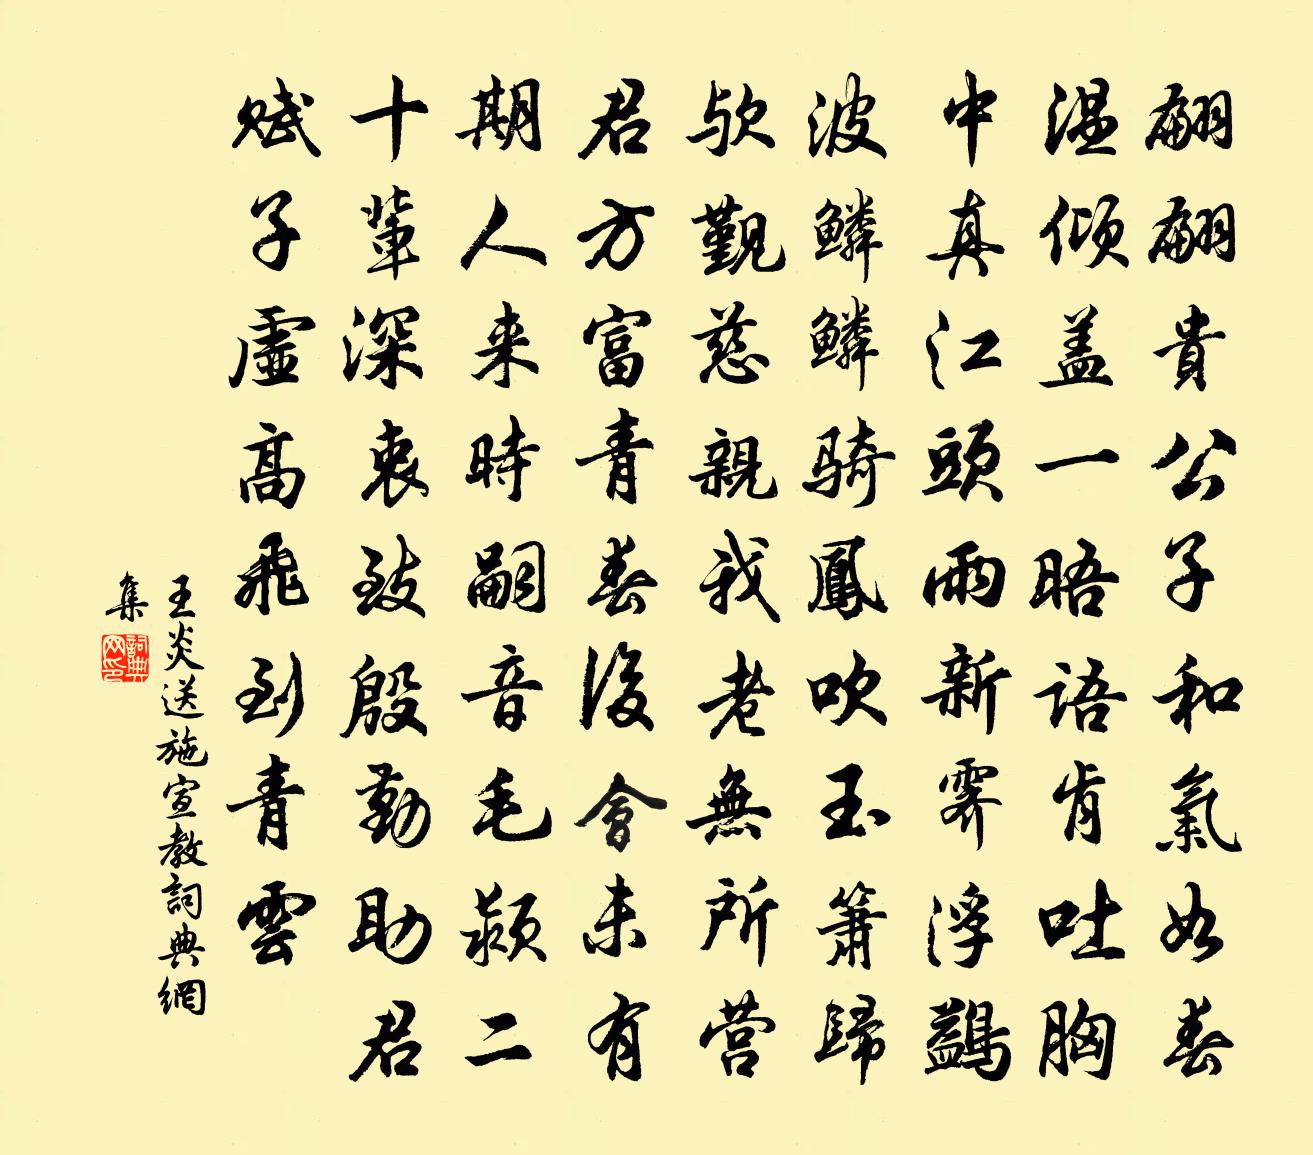 翩翩貴公子和氣如春
温傾盖一晤語肯吐胸
中真江頭雨新霽浮鷁
波鱗鱗騎鳳吹玉簫歸
欤覲慈親我老無所营
君方富青春後會未有
期人来時嗣音毛颖二
十輩深衷致殷勤助君
賦子虛高飛到青雲
王炎送施宣教詞典網
集
詞典
网印